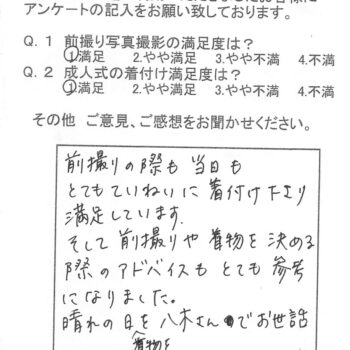 アンケートの記入をお願い致しております。
Q. 1 前撮り写真撮影の満足度は？
①満足 2.やや満足 3.やや不満 4.不満
Q. 2 成人式の着付け満足度は？
①満足 2.やや満足 3.やや不満 4.不満
その他 ご意見、ご感想をお聞かせください。
前撮りの際も 当日も
とてもていねいに 着付け下さり
満足しています。
そして 前撮りや 着物を 決める
際の アドバイスも とても 参考
になりました。
晴れの日を 八木さん でお世話
着物を